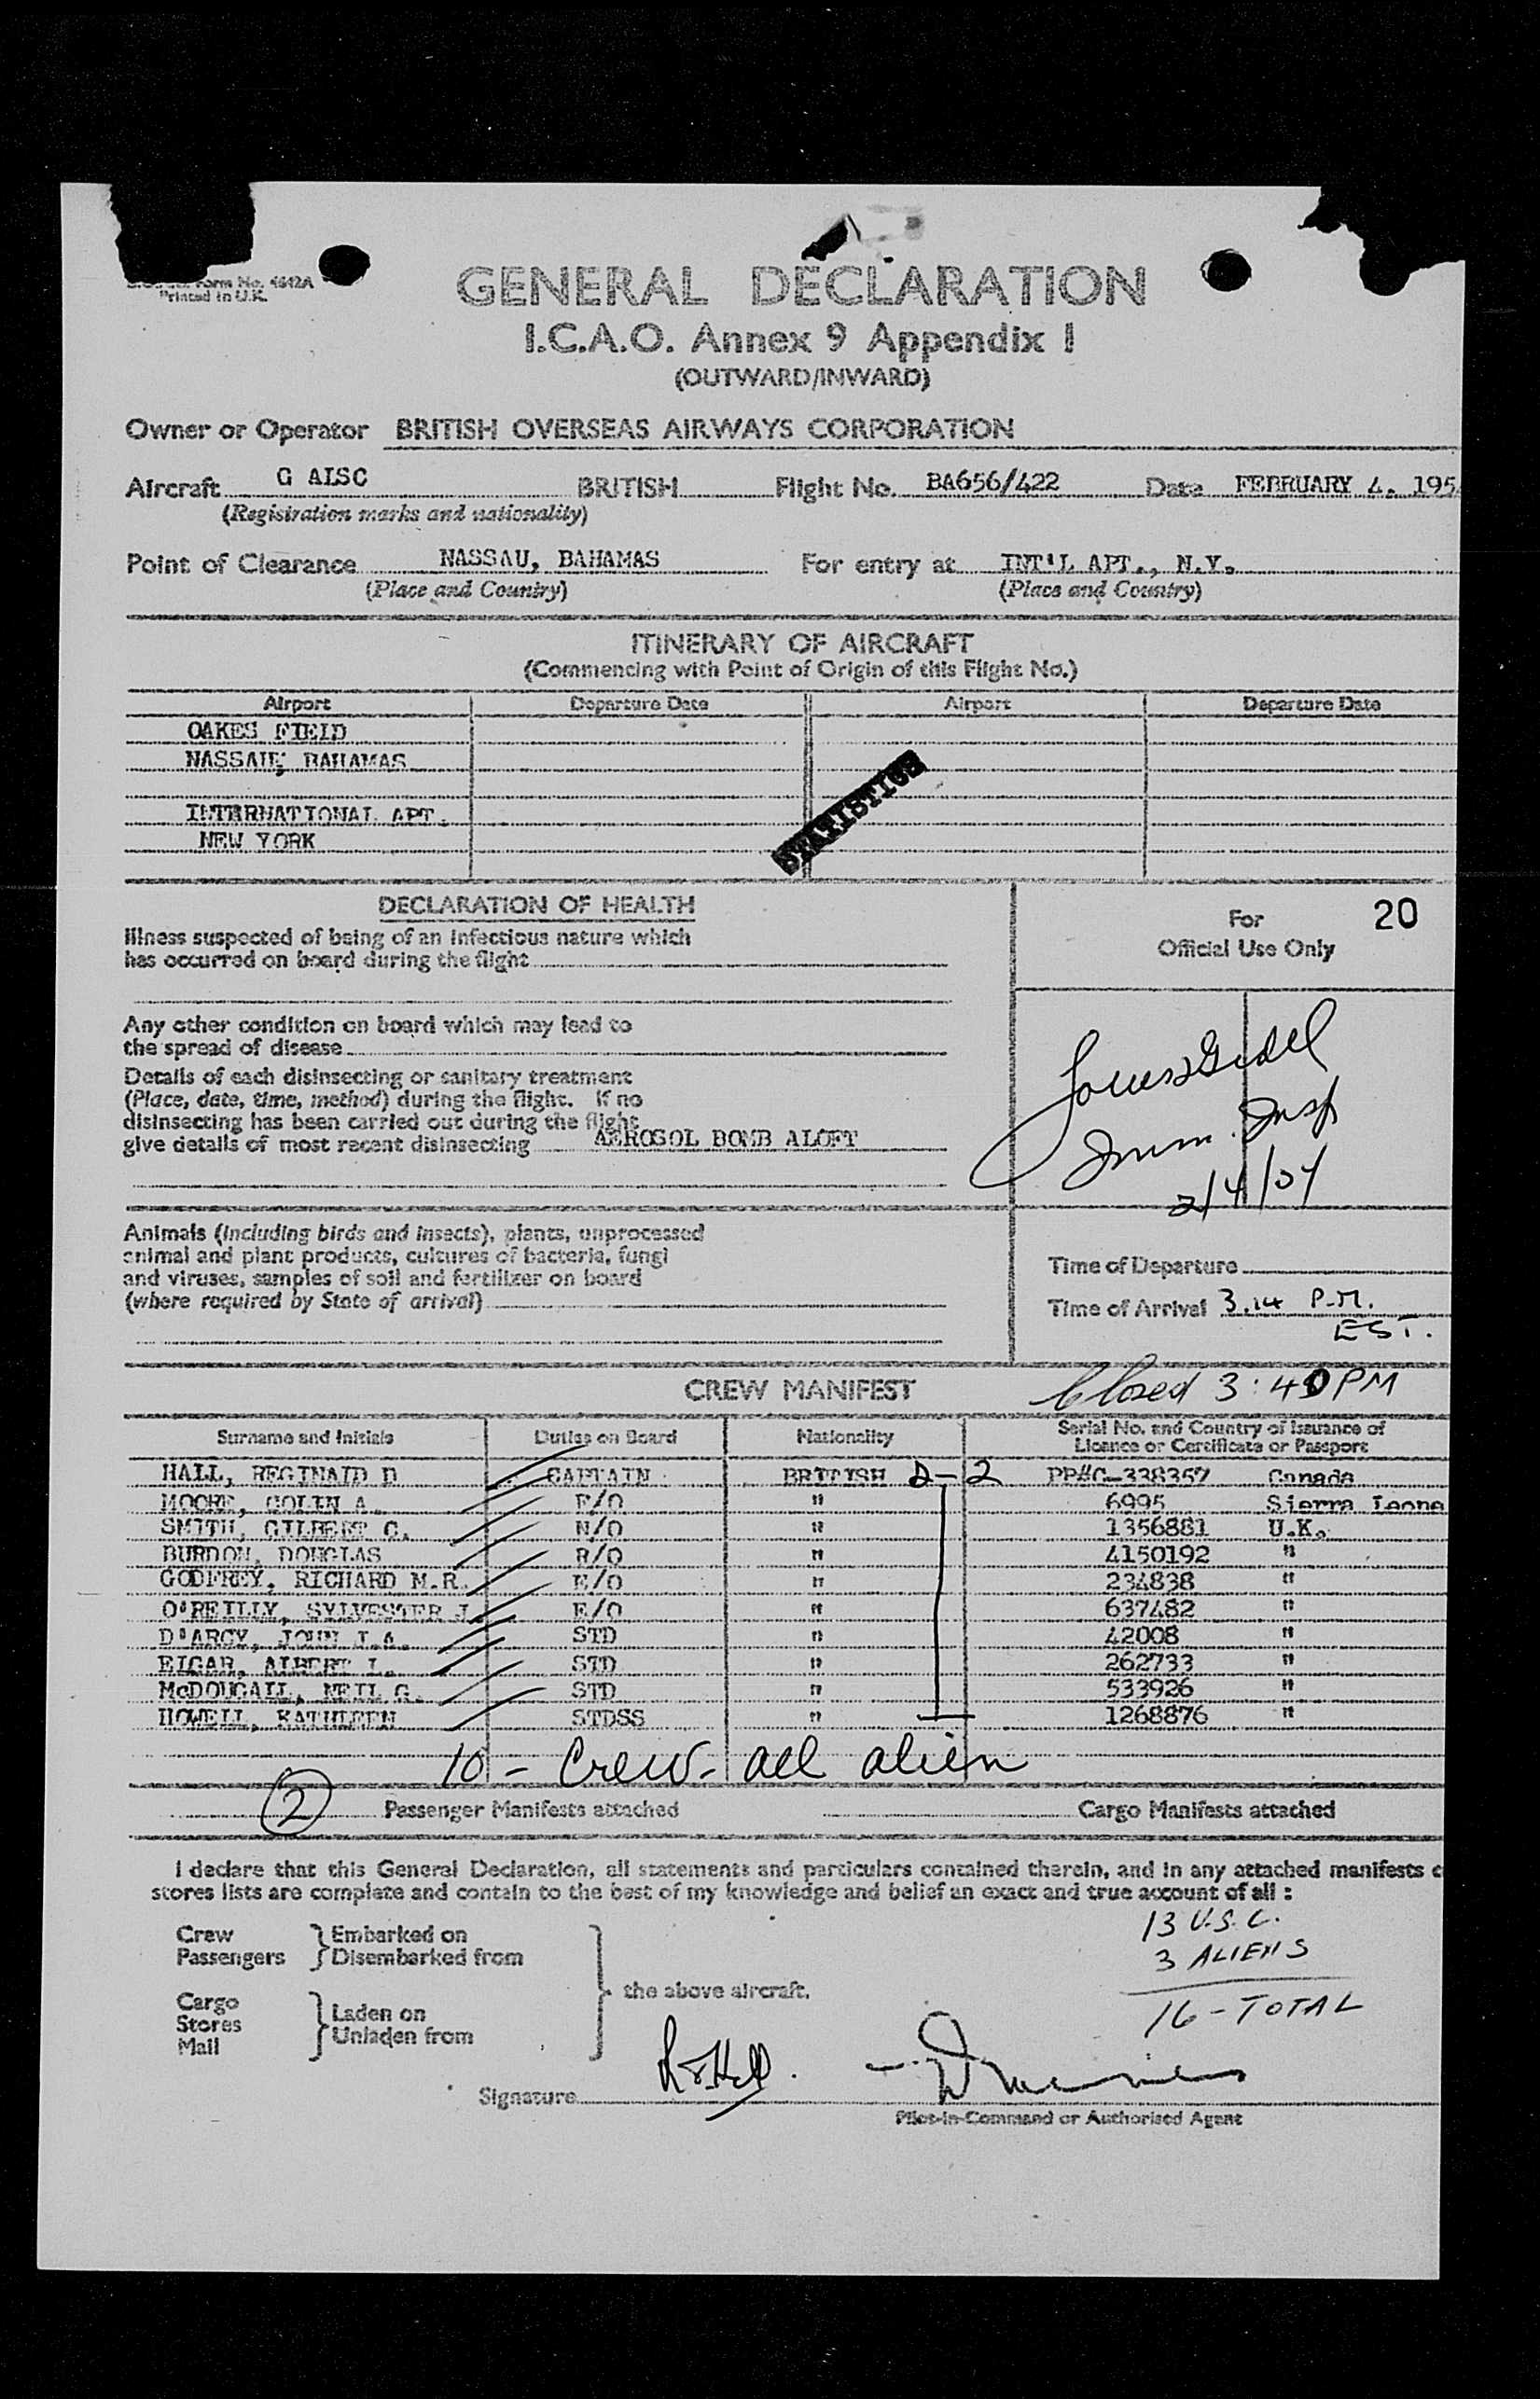 Form No. 4642A
Printed in U.K.
GENERAL DECLARATION
I.C.A.O. Annex 9 Appendix 1
(OUTWARD/INWARD)
Owner or Operator BRITISH OVERSEAS AIRWAYS CORPORATION
Aircraft G ALSC BRITISH Flight No. BA656/422 Date FEBRUARY 4. 195
(Registration marks and nationality)
Point of Clearance NASSAU, BAHAMAS For entry at INT'L APT., N.Y.
(Place and Country) (Place and Country)
ITINERARY OF AIRCRAFT
(Commencing with Point of Origin of this Flight No.)
Airport Departure Date Airport Departure Date
OAKES FIELD
NASSAU, BAHAMAS
INTERNATIONAL APT.
NEW YORK
STATISTICS
DECLARATION OF HEALTH
For 20
Official Use Only
Illness suspected of being of an infectious nature which
has occurred on board during the flight
Any other condition on board which may lead to
the spread of disease
Details of each disinsecting or sanitary treatment
(Place, date, time, method) during the flight. If no
disinsecting has been carried out during the flight
give details of most recent disinsecting AEROSOL BOMB ALOFT
Imm. Insp
2/4/54
Animals (including birds and insects), plants, unprocessed
animal and plant products, cultures of bacteria, fungi
and viruses, samples of soil and fertilizer on board
(where required by State of arrival)
Time of Departure
Time of Arrival 3.14 P.M.
EST.
CREW MANIFEST Closed 3:40 PM
Surname and Initials Duties on Board Nationality Serial No. and Country of Issuance of
Licence or Certificate or Passport
HALL, REGINALD D CAPTAIN BRITISH D-2 PP#C-338357 Canada
MOORE, COLIN A. F/O " 6995 Sierra Leone
SMITH, GILBERT C. N/O " 1356881 U.K.
BURDON, DOUGLAS R/O " 4150192 "
GODFREY, RICHARD M.R. E/O " 234838 "
O'REILLY, SYLVESTER J E/O " 637482 "
D'ARCY, JOHN J.A. STD " 42008 "
ELGAR, ALBERT L. STD " 262733 "
McDOUGALL, NEIL G. STD " 533926 "
HOWELL, KATHLEEN STDSS " 1268876 "
10 - Crew - all alien
2 Passenger Manifests attached Cargo Manifests attached
I declare that this General Declaration, all statements and particulars contained therein, and in any attached manifests
stores lists are complete and contain to the best of my knowledge and belief an exact and true account of all :
Crew Embarked on
Passengers Disembarked from
the above aircraft.
Cargo Laden on
Stores Unladen from
Mail
13 U.S.C.
3 ALIENS
16 - TOTAL
Signature
Pilot-in-Command or Authorised Agent